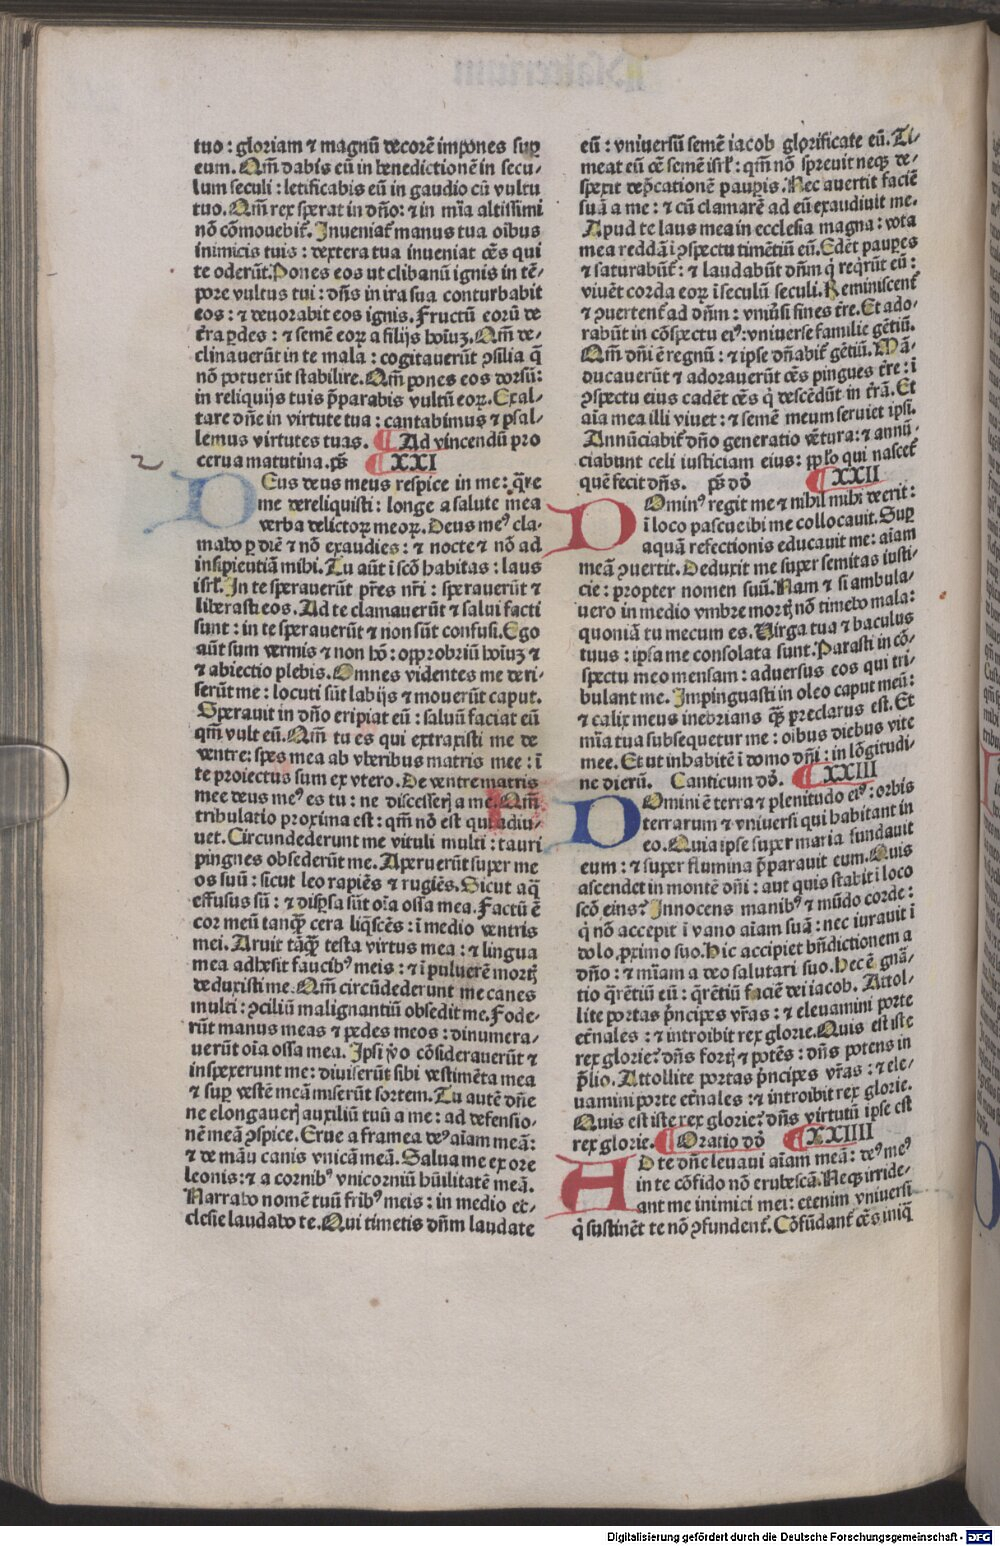 tuo : gloriam ⁊ magnū decorē impones sup̱
eum. Qm̄ dabis eū in benedictionē in secu-
lum seculi : letificabis eū in gaudio cū vultu
tuo. Qm̄ rex sperat in dn̄o: ⁊ in mīa altissimi
nō cōmouebit᷑. Inueniat᷑ manus tua oībus
inimicis tuis : dextera tua inueniat oēs qui
te oderūt. Pones eos ut clibanū ignis in tē-
pore vultus tui : dn̄s in ira sua conturbabit
eos : ⁊ deuorabit eos ignis. Fructū eorū de
t̄ra ꝑdes : ⁊ semē eoꝝ a filijs hoīuꝫ. Qm̄ de-
clinauerūt in te mala : cogitauerūt ꝯsilia q̄
nō potuerūt stabilire. Qm̄ pones eos dorsū:
in reliquijs tuis p̄parabis vultū eoꝝ. Exal-
tare dn̄e in virtute tua : cantabimus ⁊ psal-
lemus virtutes tuas. ¶ Ad vincendū pro
cerua matutina. ps̄ ¶ XXI
DEus deus meus respice in me: q̄re
me dereliquisti : longe a salute mea
verba delictoꝝ meoꝝ. Deus me⁹ cla-
mabo ꝑ diē ⁊ nō exaudies : ⁊ nocte ⁊ nō ad
insipientiā mihi. Tu aūt ī scō habitas : laus
isrl̄. In te sperauerūt pr̄es nr̄i : sperauerūt ⁊
liberasti eos. Ad te clamauerūt ⁊ salui facti
sunt : in te sperauerūt ⁊ non sūt confusi. Ego
aūt sum vermis ⁊ non hō: opprobriū hoīuꝫ ⁊
⁊ abiectio plebis. Omnes videntes me deri-
serūt me : locuti sūt labijs ⁊ mouerūt caput.
Sperauit in dn̄o eripiat eū : saluū faciat eū
qm̄ vult eū. Qm̄ tu es qui extraxisti me de
ventre: spes mea ab vberibus matris mee : ī
te proiectus sum ex vtero. De ventre matris
mee deus me⁹ es tu : ne discesserꝭ a me. Qm̄
tribulatio proxima est: qm̄ nō est qui adiu-
uet. Circundederunt me vituli multi : tauri
pingues obsederūt me. Aperuerūt super me
os suū : sicut leo rapiēs ⁊ rugiēs. Sicut aq̄
effusus sū : ⁊ disꝑsa sūt oīa ossa mea. Factū ē
cor meū tanqꝫ cera liq̄scēs: ī medio ventris
mei. Aruit tāqꝫ testa virtus mea : ⁊ lingua
mea adhesit faucib⁹ meis : ⁊ ī puluerē mortꝭ
deduxisti me. Qm̄ circūdederunt me canes
multi : ꝯciliū malignantiū obsedit me. Fode-
rūt manus meas ⁊ pedes meos : dinumera-
uerūt oīa ossa mea. Ipsi ꝟo cōsiderauerūt ⁊
inspexerunt me: diuiserūt sibi vestimēta mea
⁊ sup̱ vestē meā miserūt sortem. Tu autē dn̄e
ne elongauerꝭ auxiliū tuū a me: ad defensio-
nē meā ꝯspice. Erue a framea de⁹ aīam meā:
⁊ de māu canis vnicā meā. Salua me ex ore
leonis: ⁊ a cornib⁹ vnicorniū hūilitatē meā.
Narrabo nomē tuū frib⁹ meis : in medio ec-
clesie laudabo te. Qui timetis dn̄m laudate
eū : vniuersū semē iacob glorificate eū. Ti-
meat eū oē semē isrl̄ : qm̄ nō spreuit neqꝫ de-
spexit dep̄cationē pauꝑis. Nec auertit faciē
suā a me : ⁊ cū clamarē ad eū exaudiuit me.
Apud te laus mea in ecclesia magna : vota
mea reddā ī ꝯspectu timētiū eū. Edēt pauꝑes
⁊ saturabūt᷑ : ⁊ laudabūt dn̄m q̇ reqr̄ūt eū :
viuēt corda eoꝝ ī seculū seculi. Reminiscent᷑
⁊ ꝯuertent᷑ ad dn̄m : vniūsi fines t̄re. Et ado-
rabūt in cōspectu ei⁹: vniuerse familie gētiū.
Qm̄ dn̄i ē regnū : ⁊ ipse dn̄abit᷑ gētiū. Mā-
ducauerūt ⁊ adorauerūt oēs pingues t̄re : ī
ꝯspectu eius cadēt oēs q̇ descēdūt in t̄rā. Et
aīa mea illi viuet : ⁊ semē meum seruiet ipsi.
Annūciabit᷑ dn̄o generatio vētura: ⁊ annū-
ciabunt celi iusticiam eius: ppl̄o qui nascet᷑
quē fecit dn̄s. ps̄ dd̄ ¶ XXII
DOmin⁹ regit me ⁊ nihil mihi deerit :
ī loco pascue ibi me collocauit. Sup̱
aquā refectionis educauit me: aīam
meā ꝯuertit. Deduxit me super semitas iusti-
cie : propter nomen suū. Nam ⁊ si ambula-
uero in medio vmbre mortꝭ nō timebo mala:
quoniā tu mecum es. Virga tua ⁊ baculus
tuus : ipsa me consolata sunt. Parasti in cō-
spectu meo mensam : aduersus eos qui tri-
bulant me. Impinguasti in oleo caput meū:
⁊ calix meus inebrians qꝫ preclarus est. Et
mīa tua subsequetur me : oībus diebus vite
mee. Et ut inhabitē ī domo dn̄i : in lōgitudi-
ne dierū. Canticum dd̄. ¶ XXIII
DOmini ē terra ⁊ plenitudo ei⁹: orbis
terrarum ⁊ vniuersi qui habitant in
eo. Quia ipse super maria fundauit
eum : ⁊ super flumina p̄parauit eum. Quis
ascendet in montē dn̄i : aut quis stabit ī loco
scō eius? Innocens manib⁹ ⁊ mūdo corde :
q̇ nō accepit ī vano aīam suā : nec iurauit ī
dolo ꝓximo suo. Hic accipiet bn̄dictionem a
dn̄o : ⁊ mīam a deo salutari suo. Hec ē gnā-
tio q̄rētiū eū : q̄rētiū faciē dei iacob. Attol-
lite portas p̄ncipes vr̄as : ⁊ eleuamini porte
et̄nales : ⁊ introibit rex glorie. Quis est iste
rex glorie? dn̄s fortꝭ ⁊ potēs : dn̄s potens in
p̄lio. Attollite portas p̄ncipes vr̄as : ⁊ ele-
uamini porte et̄nales : ⁊ introibit rex glorie.
Quis est iste rex glorie? dn̄s virtutū ipse est
rex glorie. ¶ Oratio dd̄ ¶ XXIIII
AD te dn̄e leuaui aīam meā : de⁹ me⁹
in te cōfido nō erubescā. Neqꝫ irride-
ant me inimici mei : etenim vniuersi
q̇ sustinēt te nō ꝯfundent᷑. Cōfūdant᷑ oēs iniq̄
Digitalisierung gefördert durch die Deutsche Forschungsgemeinschaft - DFG